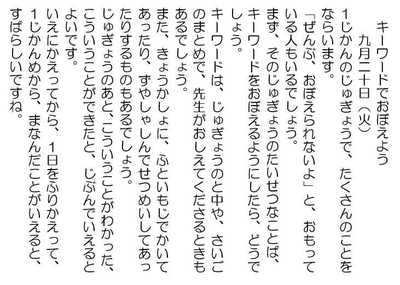 キーワードでおぼえよう
九月二十日（火）
１じかんのじゅぎょうで、たくさんのことを
ならいます。
「ぜんぶ、おぼえられないよ」と、おもって
いる人もいるでしょう。
まず、そのじゅぎょうのたいせつなことば、
キーワードをおぼえるようにしたら、どうで
しょう。
キーワードは、じゅぎょうのと中や、さいご
のまとめで、先生がおしえてくださるときも
あるでしょう。
また、きょうかしょに、ふといもじでかいて
あったり、ずやしゃしんでせつめいしてあっ
たりするものもあるでしょう。
じゅぎょうのあと、こういうことがわかった、
こういうことができたと、じぶんでいえると
よいです。
いえにかえってから、１日をふりかえって、
１じかんめから、まなんだことがいえると、
すばらしいですね。